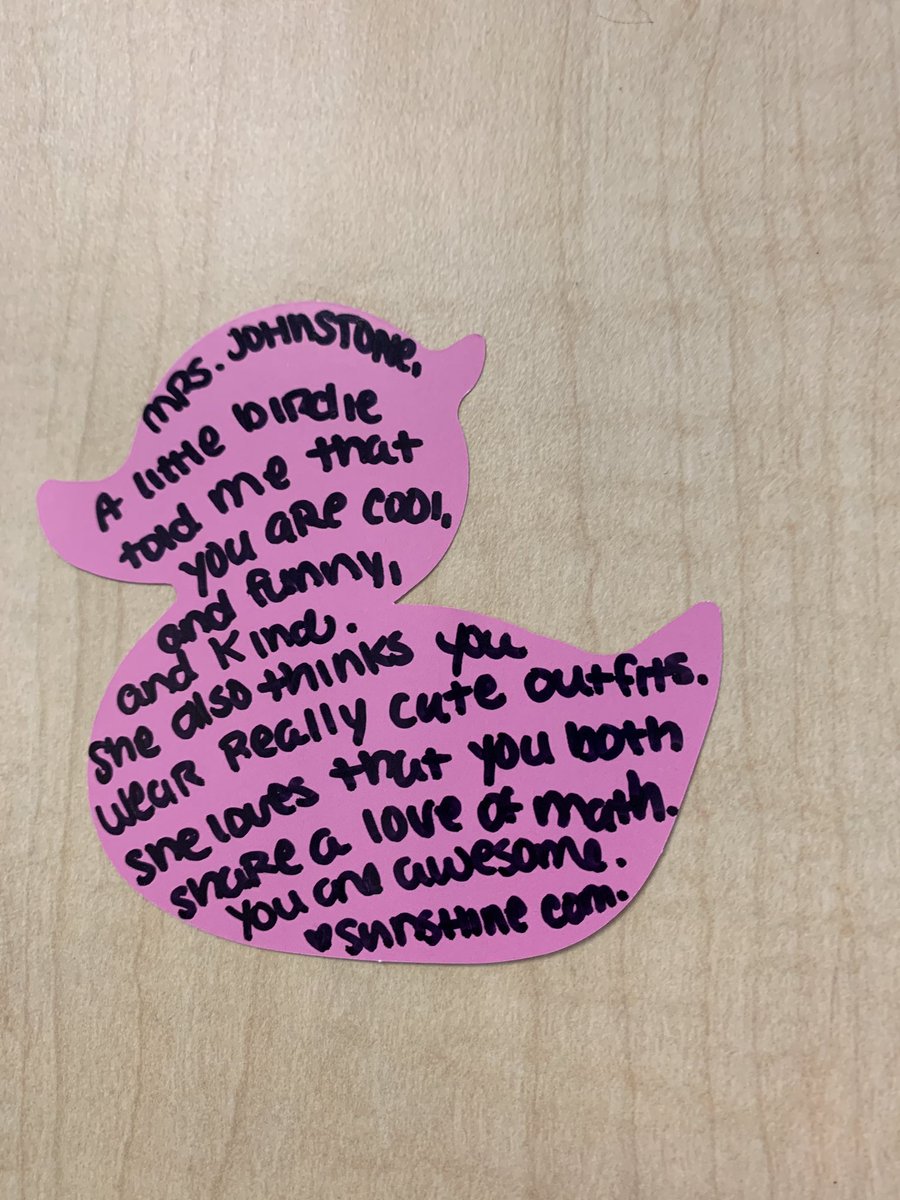 MRS. JOHNSTONE,
A little birdie
told me that
you are cool,
and funny,
and kind.
She also thinks you
wear really cute outfits.
She loves that you both
share a love of math.
You are awesome.
♥ Sunshine com.